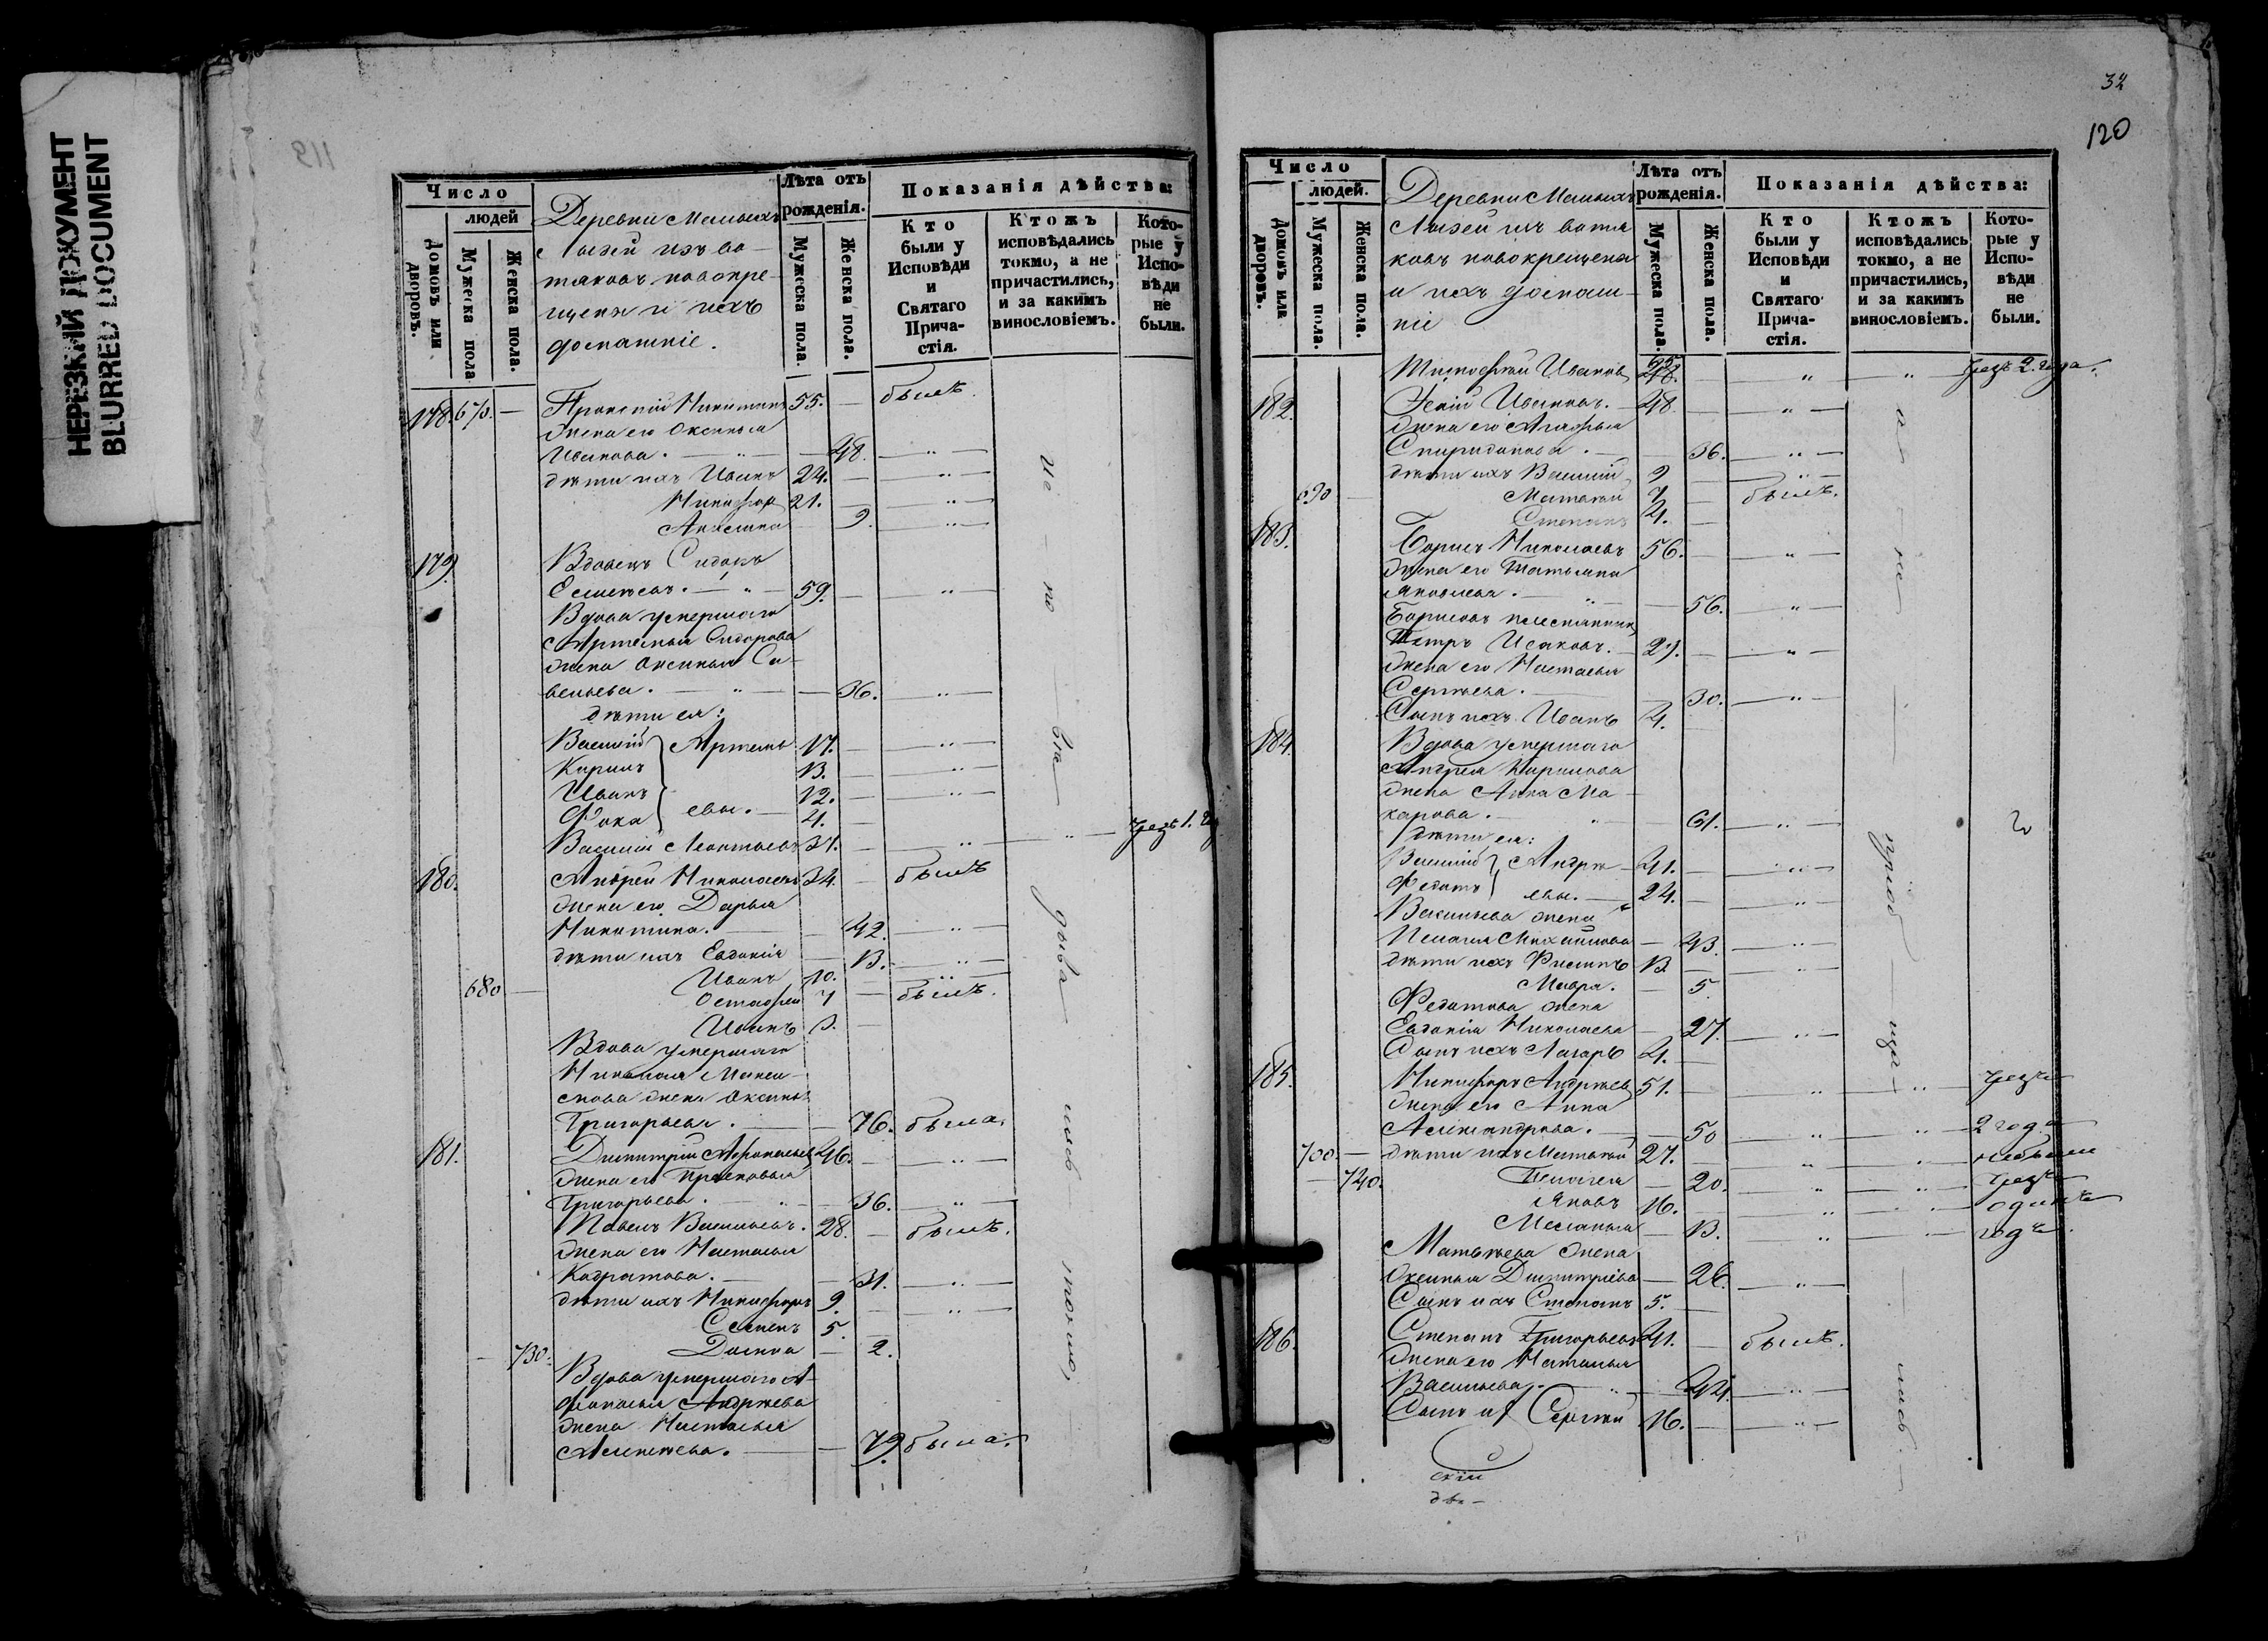 НЕРЕЗКИЙ ДОКУМЕНТ
BLURRED DOCUMENT
119
Число
людей
Домовъ или дворовъ.
Мужеска пола
Женска пола.
Деревни Малыхъ
Лызей изъ во-
тяковъ новокре-
щены и ихъ
домашніе.
Лѣта отъ рожденія.
Мужеска пола.
Женска пола.
Показанія дѣйства:
Кто были у Исповѣди и Святаго Прича-стія.
Ктожъ исповѣдались токмо, а не причастились, и за какимъ винословіемъ.
Кото-рые у Испо-вѣди не были.
178. 670. — Никитинъ 55. — былъ.
Жена его Оксинья
Иванова. — „ — — 48. — „ —
дѣти ихъ Иванъ 24. — „ —
Никифоръ 21. — „ —
9. — „ —
179. Вдовецъ Сидоръ
— „ — 59. — — „ —
Вдова умершаго
Артемья Сидорова
жена Оксинья Са-
вельева. — „ — — 36. — „ —
дѣти ея:
Василій } Артемь 17. — — „ —
Кирилъ 13. — — „ —
Иванъ } 12. — — „ —
Фока евы. — 4. —
Василій Леонтьевъ 31. — — „ — „ — чрезъ 1. го
180. Андрей Николаевъ 34. — былъ
Жена его Дарья
Никитина. — — 42. — „ —
дѣти ихъ Евдокія — 13. — „ —
Иванъ 10. — — „ —
680 — 7 — былъ.
Иванъ 3. —
Вдова умершаго
Николая Макси-
мова жена Оксинья
Григорьева. — — 76. была.
181. Димитрій Афонасьевъ 46. — — „ —
Жена его Прасковья
Григорьева. — „ — 36. — „ —
Павелъ Васильевъ. 28. — былъ.
Жена его Настасья
Кодратова. — — 31. — „ —
дѣти ихъ Никифоръ 9. — — „ —
Семенъ 5. —
— 730. — 2.
Вдова умершаго А-
фонасья Андрѣева
жена Настасья
Алексѣева. — — 79. была.
32
120
Число
людей.
Домовъ или дворовъ.
Мужеска пола.
Женска пола.
Деревни Малыхъ
Лызей изъ вотя
ковъ новокрещены
и ихъ домаш-
ніе
Лѣта отъ рожденія.
Мужеска пола.
Женска пола.
Показанія дѣйства:
Кто были у Исповѣди и Святаго Прича-стія.
Ктожъ исповѣдались токмо, а не причастились, и за какимъ винословіемъ.
Кото-рые у Испо-вѣди не были.
Тимофей Ивановъ — „ — „ — чрезъ 2. года.
182. Ивановъ. — 48. — — „ —
Жена его Агафья
Спиридонова. — — 36. — „ —
дѣти ихъ Василій 9 — — „ —
690 — Матвѣй 7 — былъ.
Степанъ 4. —
183. Борисъ Николаевъ 56. — — „ —
Жена его Татьяна
Яковлева. — „ — — 56. — „ —
Борисовъ племянникъ
Петръ Исаковъ. — 29. — — „ —
Жена его Настасья
Сергѣева. — — 30. — „ —
Сынъ ихъ Иванъ 4. —
184. Вдова умершаго
Андрея Кирилова
жена Анна Ма-
карова. — „ — 61. — „ —
дѣти ея:
Василій } Андрѣ- 41. — — „ —
Федотъ } евы. — 24. — — „ —
Васильева жена
Пелагея Михайлова — 43. — „ —
дѣти ихъ Филипъ 13 — — „ —
Мавра. — 5.
Федотова жена
Евдокія Николаева — 27. — „ —
Сынъ ихъ Лазарь 4. —
185. Никифоръ Андрѣевъ 51. — — „ — „ — чрезъ
Жена его Анна
Александрова. — — 50 — „ — „ — 2 года
700. — дѣти ихъ Матвѣй 27. — „ — „ — небыли
— 740. Пелагея — 20. — „ — „ — чрезъ
Яковъ 16. — „ — „ — одинъ
Меланья — 13. — „ — „ — годъ.
Матвѣева жена
Оксинья Димитріева — 26. — „ —
Сынъ ихъ Степанъ 5. —
186. Степанъ Григорьевъ 41. — былъ.
Жена его Наталья
Васильева. — „ — 44. — „ —
Сынъ их Сергѣй 16. — — „ —